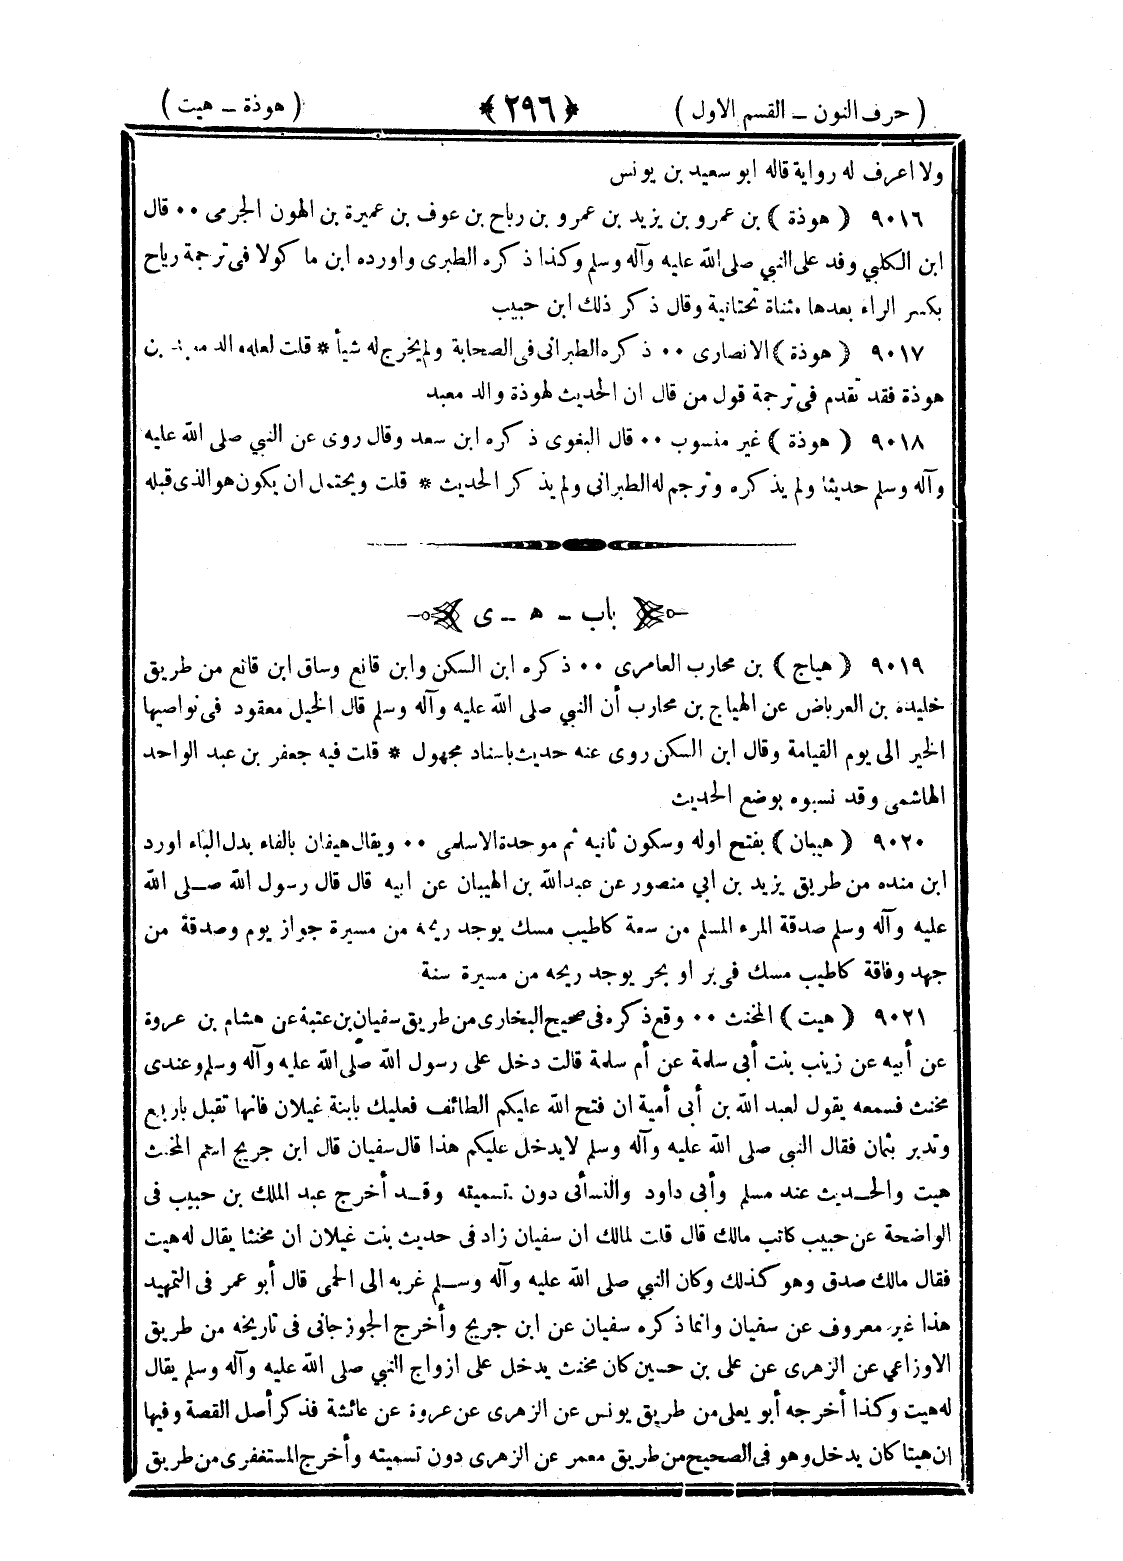 ( حرف النون ــ القسم الاول ) ﴿ ٢٩٦ ﴾ ( هوذة ــ هيت )
ولا اعرف له رواية قاله ابو سعيد بن يونس
٩٠١٦ ( هوذة ) بن عمرو بن يزيد بن عمرو بن رباح بن عوف بن عميرة بن الهون الجرمى ٠٠ قال
ابن الكلبي وفد على النبي صلى الله عليه وآله وسلم وكذا ذكره الطبرى واورده ابن ماكولا فى ترجمة رياح
بكسر الراء بعدها مثناة تحتانية وقال ذكر ذلك ابن حبيب
٩٠١٧ ( هوذة ) الانصارى ٠٠ ذكره الطبرانى فى الصحابة ولم يخرج له شيأ * قلت لعله والد معبد بن
هوذة فقد تقدم فى ترجمة قول من قال ان الحديث لهوذة والد معبد
٩٠١٨ ( هوذة ) غير منسوب ٠٠ قال البغوى ذكره ابن سعد وقال روى عن النبي صلى الله عليه
وآله وسلم حديثا ولم يذكره وترجم له الطبرانى ولم يذكر الحديث * قلت ويحتمل ان يكون هو الذى قبله
باب ــ هـ ــ ى
٩٠١٩ ( هياج ) بن محارب العامرى ٠٠ ذكره ابن السكن وابن قانع وساق ابن قانع من طريق
خليدة بن العرباض عن الهياج بن محارب أن النبي صلى الله عليه وآله وسلم قال الخيل معقود فى نواصيها
الخير الى يوم القيامة وقال ابن السكن روى عنه حديث باسناد مجهول * قلت فيه جعفر بن عبد الواحد
الهاشمى وقد نسبوه بوضع الحديث
٩٠٢٠ ( هيبان ) بفتح اوله وسكون ثانيه ثم موحدة الاسلمى ٠٠ ويقال هيفان بالفاء بدل الباء اورد
ابن منده من طريق يزيد بن ابي منصور عن عبدالله بن الهيبان عن ابيه قال قال رسول الله صلى الله
عليه وآله وسلم صدقة المرء المسلم من سعة كاطيب مسك يوجد ريحه من مسيرة جواز يوم وصدقة من
جهد وفاقة كاطيب مسك فى بر او بحر يوجد ريحه من مسيرة سنة
٩٠٢١ ( هيت ) المخنث ٠٠ وقع ذكره فى صحيح البخارى من طريق سفيان بن عتبة عن هشام بن عروة
عن أبيه عن زينب بنت أبي سلمة عن أم سلمة قالت دخل على رسول الله صلى الله عليه وآله وسلم وعندى
مخنث فسمعه يقول لعبد الله بن أبى أمية ان فتح الله عليكم الطائف فعليك بابنة غيلان فانها تقبل باربع
وتدبر بثمان فقال النبى صلى الله عليه وآله وسلم لايدخل عليكم هذا قال سفيان قال ابن جريج اسم المخنث
هيت والحديث عند مسلم وأبى داود والنسأئى دون تسميته وقد أخرج عبد الملك بن حبيب فى
الواضحة عن حبيب كاتب مالك قال قلت لمالك ان سفيان زاد فى حديث بنت غيلان ان مخنثا يقال له هيت
فقال مالك صدق وهو كذلك وكان النبي صلى الله عليه وآله وسلم غربه الى الحمى قال أبو عمر فى التمهيد
هذا غير معروف عن سفيان وانما ذكره سفيان عن ابن جريج وأخرج الجوزجانى فى تاريخه من طريق
الاوزاعي عن الزهرى عن على بن حسين كان مخنث يدخل على ازواج النبي صلى الله عليه وآله وسلم يقال
له هيت وكذا أخرجه أبو يعلى من طريق يونس عن الزهرى عن عروة عن عائشة فذكر أصل القصة وفيها
ان هيتا كان يدخل وهو فى الصحيح من طريق معمر عن الزهرى دون تسميته وأخرج المستغفرى من طريق